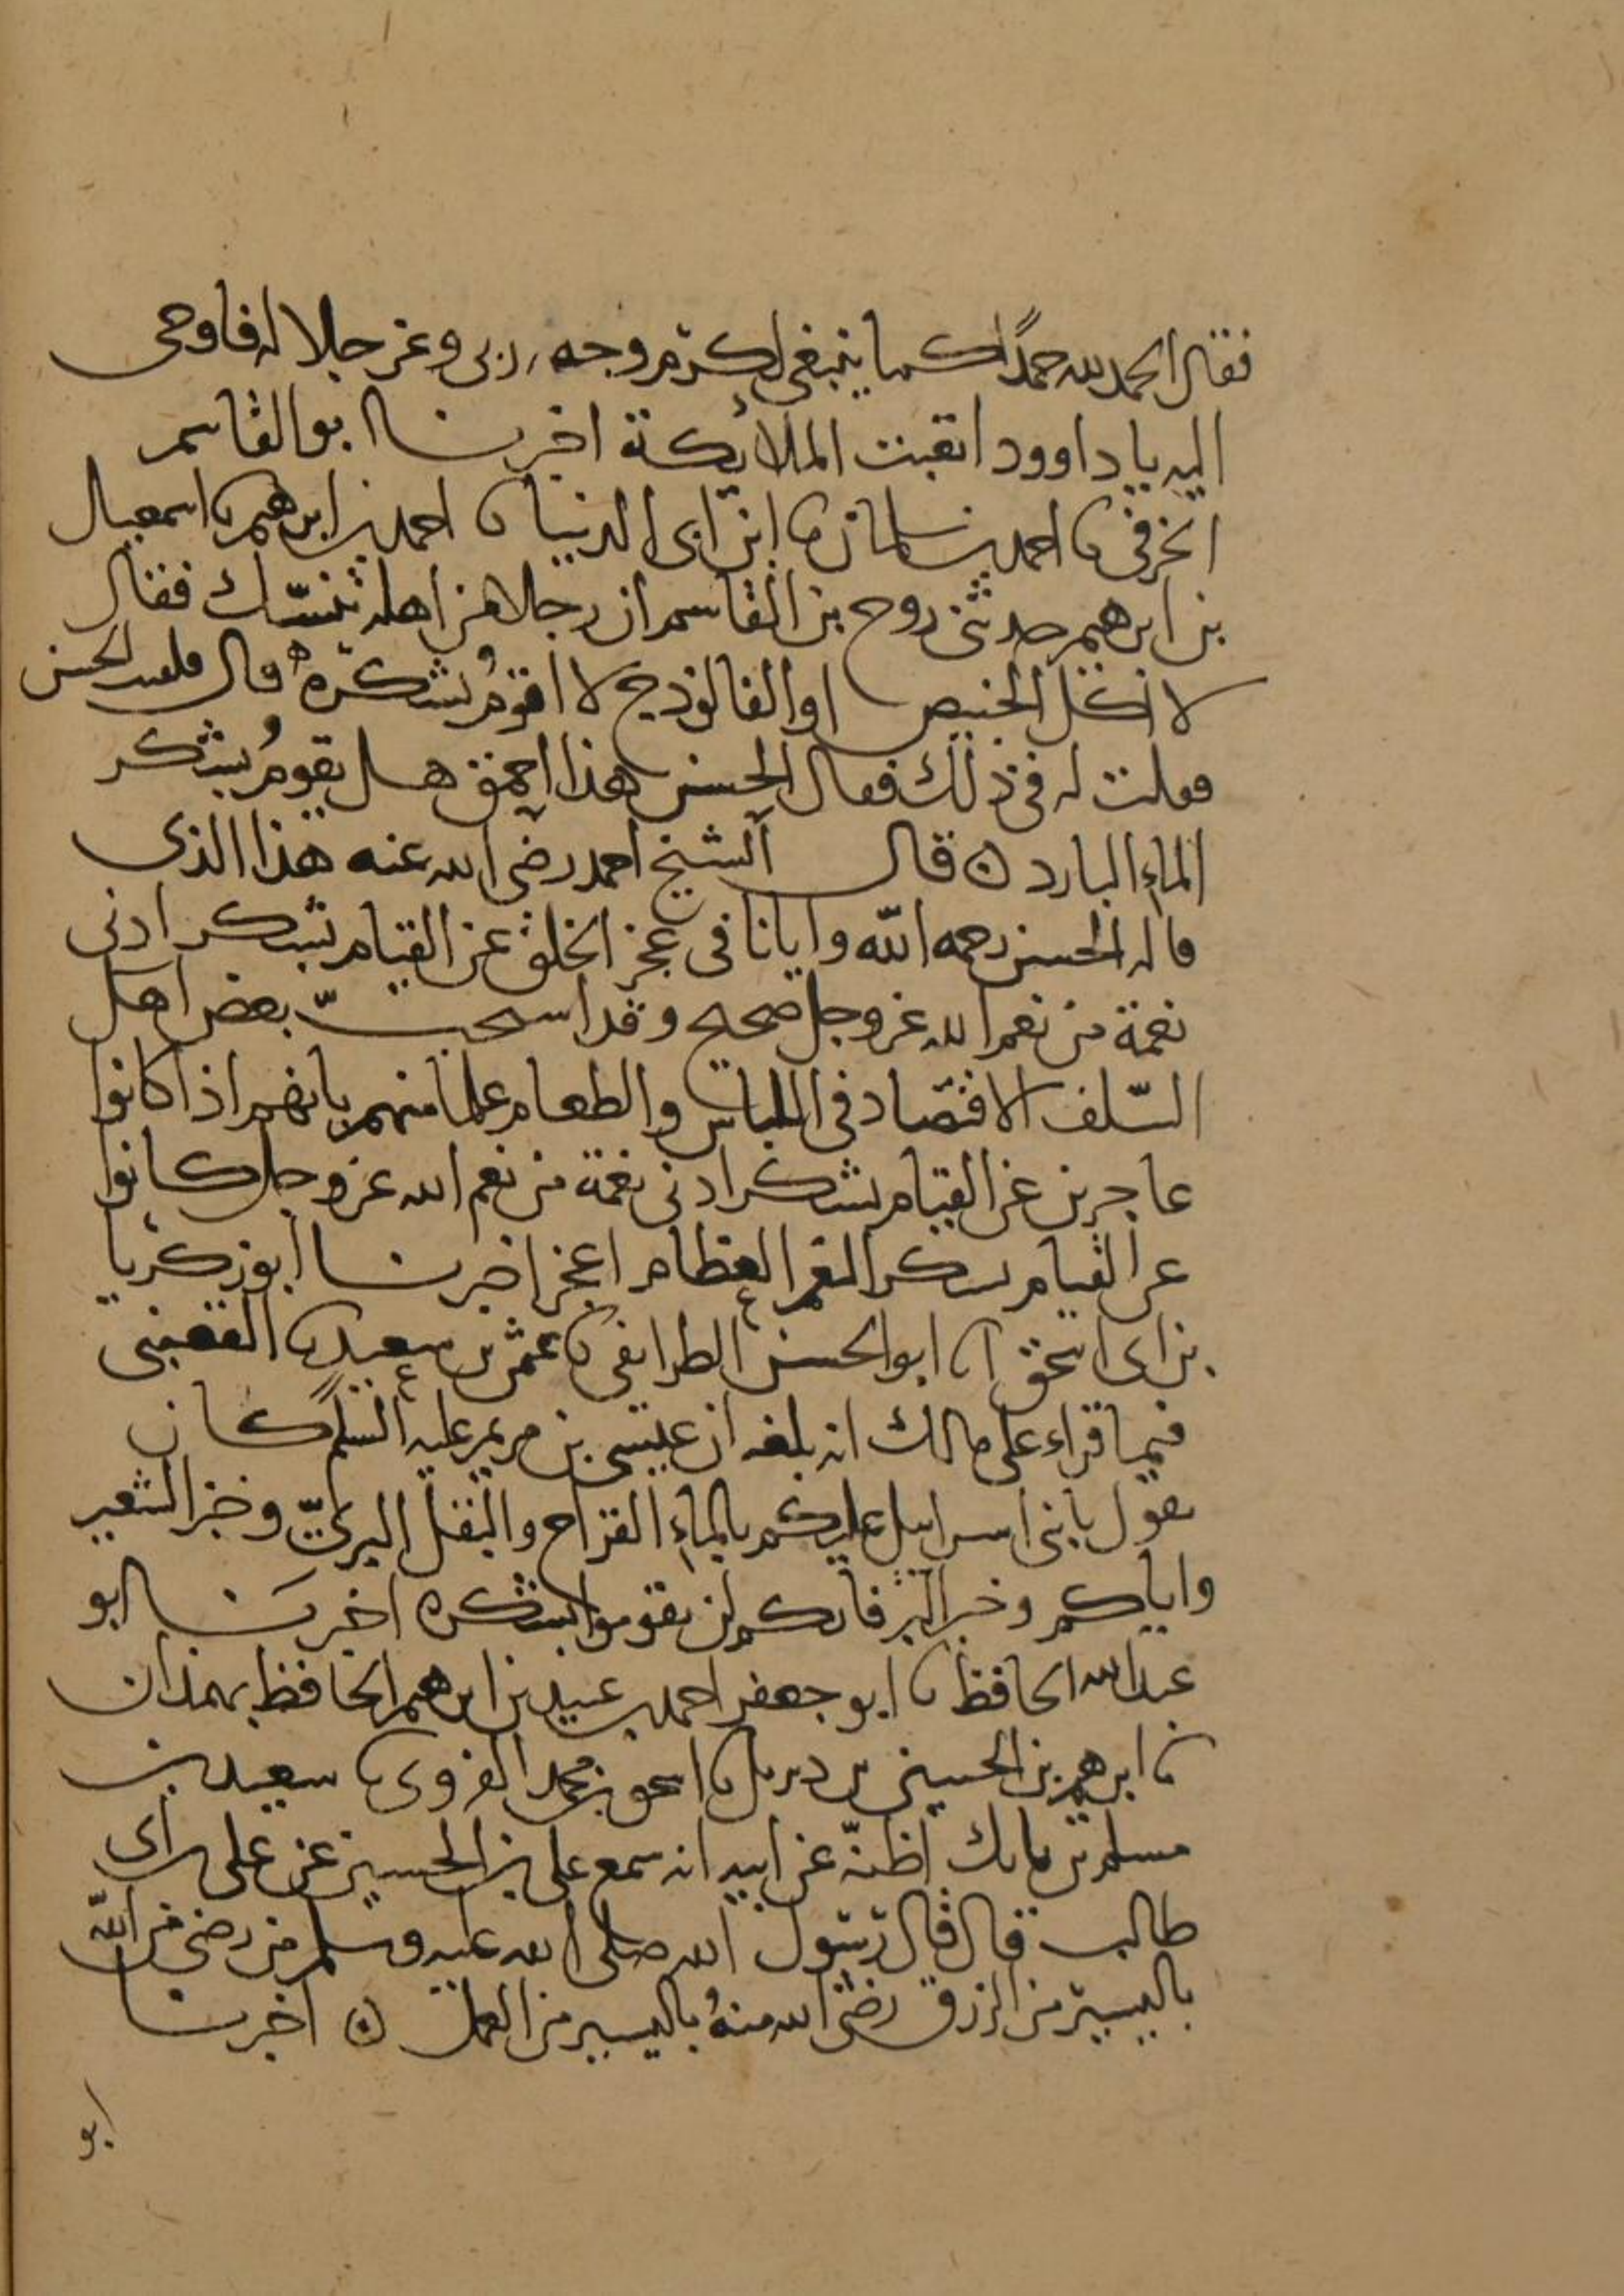 فقال الحمد لله حمدًا كما ينبغي لكرم وجه ربي وعز جلاله فاوحى
اليه يا داوود اتعبت الملائكة اخبرنا ابو القاسم
الحرفي نا احمد بن سلمان نا ابن ابي الدنيا نا احمد بن ابرهيم نا اسمعيل
بن ابرهيم حدثني روح بن القاسم ان رجلا من اهله تنسّك فقال
لا اكل الخبيص او الفالوذج لا اقوم بشكره قال فلقيت الحسن
فقلت له في ذلك فقال الحسن هذا احمق هل يقوم بشكر
الماء البارد ه قال الشيخ احمد رضي الله عنه هذا الذي
قاله الحسن رحمه الله وايانا في عجز الخلق عن القيام بشكر ادنى
نعمة من نعم الله عز وجل صحيح وقد استحبّ بعض اهل
السّلف الاقتصاد في اللباس والطعام علما منهم بانهم اذا كانوا
عاجزين عن القيام بشكر ادنى نعمة من نعم الله عز وجل كانوا
عن القيام بشكر النعم العظام اعجز اخبرنا ابو زكريا
بن ابي اسحق انا ابو الحسن الطرائفي نا عثمن بن سعيد نا القعنبي
فيما قراء على مالك انه بلغه ان عيسى بن مريم عليه السلم كان
يقول يا بني اسرايل عليكم بالماء القراح والبقل البريّ وخبز الشعير
واياكم وخبز البر فانكم لن تقوموا بشكره اخبرنا ابو
عبد الله الحافظ نا ابو جعفر احمد بن عبيد بن ابرهيم الحافظ بهمذان
نا ابرهيم بن الحسين بن ديزيل نا اسحق بن محمد الفروي نا سعيد بن
مسلم بن بانك اظنّه عن ابيه انه سمع علي بن الحسين عن علي بن ابي
طالب قال قال رسول الله صلى الله عليه وسلم من رضي من الله
باليسير من الرزق رضي الله منه باليسير من العمل ه اخبرنا
ابو